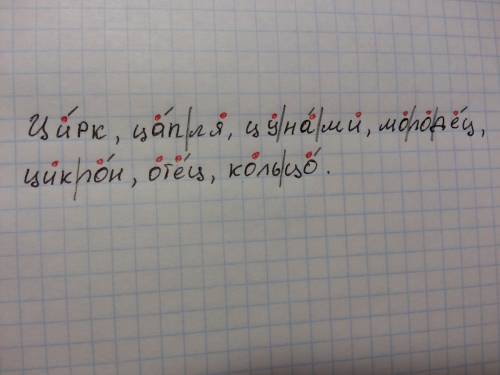 Ци́рк, ца́п|ля, цу|на́|ми, мо|ло|де́ц,
цик|ло́н, оте́ц, коль|цо́.